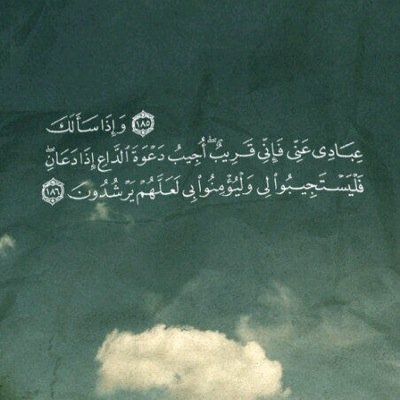 ۝١٨٥ وَإِذَا سَأَلَكَ
عِبَادِى عَنِّى فَإِنِّى قَرِيبٌ ۖ أُجِيبُ دَعْوَةَ ٱلدَّاعِ إِذَا دَعَانِ ۖ
فَلْيَسْتَجِيبُوا۟ لِى وَلْيُؤْمِنُوا۟ بِى لَعَلَّهُمْ يَرْشُدُونَ ۝١٨٦